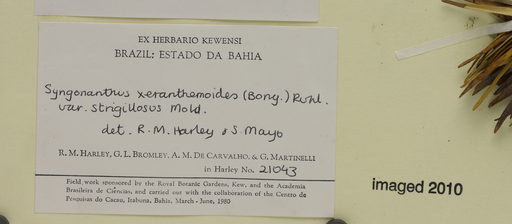 EX HERBARIO KEWENSI
BRAZIL: ESTADO DA BAHIA
Syngonanthus xeranthemoides (Bong.) Ruhl.
var. strigillosus Mold.
det. R.M. Harley & S Mayo
R. M. HARLEY, G. L. BROMLEY, A. M. DE CARVALHO, & G. MARTINELLI
in Harley No. 21043
Field work sponsored by the Royal Botanic Gardens, Kew, and the Academia
Brasileira de Ciências, and carried out with the collaboration of the Centro de
Pesquisas do Cacau, Itabuna, Bahia, March - June, 1980
imaged 2010